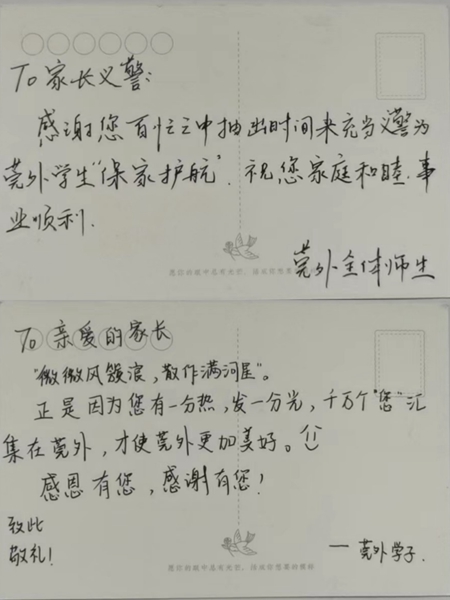 To 家长义警:
感谢您百忙之中抽出时间来充当义警为
莞外学生“保家护航”.祝您家庭和睦.事
业顺利.
莞外全体师生
To 亲爱的家长
“微微风簇浪,散作满河星”。
正是因为您有一分热,发一分光,千万个“您”汇
集在莞外,才使莞外更加美好。
感恩有您,感谢有您!
致此
敬礼!
——莞外学子.